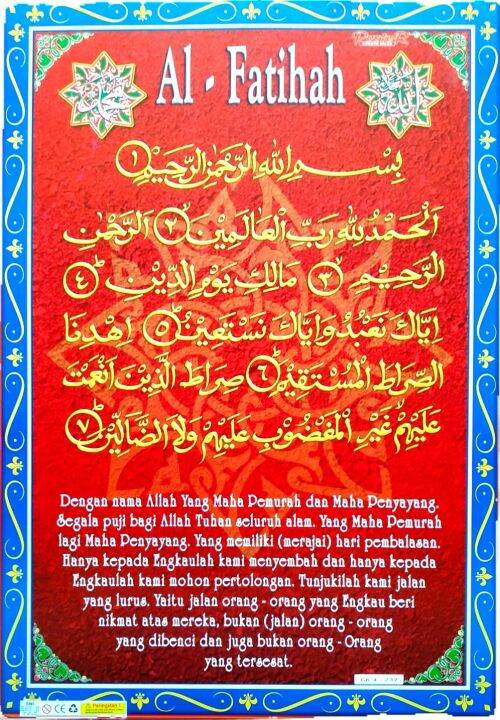 Al - Fatihah
محمد
الله
بِسْمِ اللهِ الرَّحْمٰنِ الرَّحِيْمِ ١
اَلْحَمْدُ لِلّٰهِ رَبِّ الْعَالَمِيْنَ ٢ الرَّحْمٰنِ
الرَّحِيْمِ ٣ مَالِكِ يَوْمِ الدِّيْنِ ٤
اِيَّاكَ نَعْبُدُ وَاِيَّاكَ نَسْتَعِيْنُ ٥ اِهْدِنَا
الصِّرَاطَ الْمُسْتَقِيْمَ ٦ صِرَاطَ الَّذِيْنَ اَنْعَمْتَ
عَلَيْهِمْ غَيْرِ الْمَغْضُوْبِ عَلَيْهِمْ وَلَا الضَّالِّيْنَ ٧
Dengan nama Allah Yang Maha Pemurah dan Maha Penyayang.
Segala puji bagi Allah Tuhan seluruh alam. Yang Maha Pemurah
lagi Maha Penyayang. Yang memiliki (merajai) hari pembalasan.
Hanya kepada Engkaulah kami menyembah dan hanya kepada
Engkaulah kami mohon pertolongan. Tunjukilah kami jalan
yang lurus. Yaitu jalan orang - orang yang Engkau beri
nikmat atas mereka, bukan (jalan) orang - orang
yang dibenci dan juga bukan orang - Orang
yang tersesat.
Peringatan !